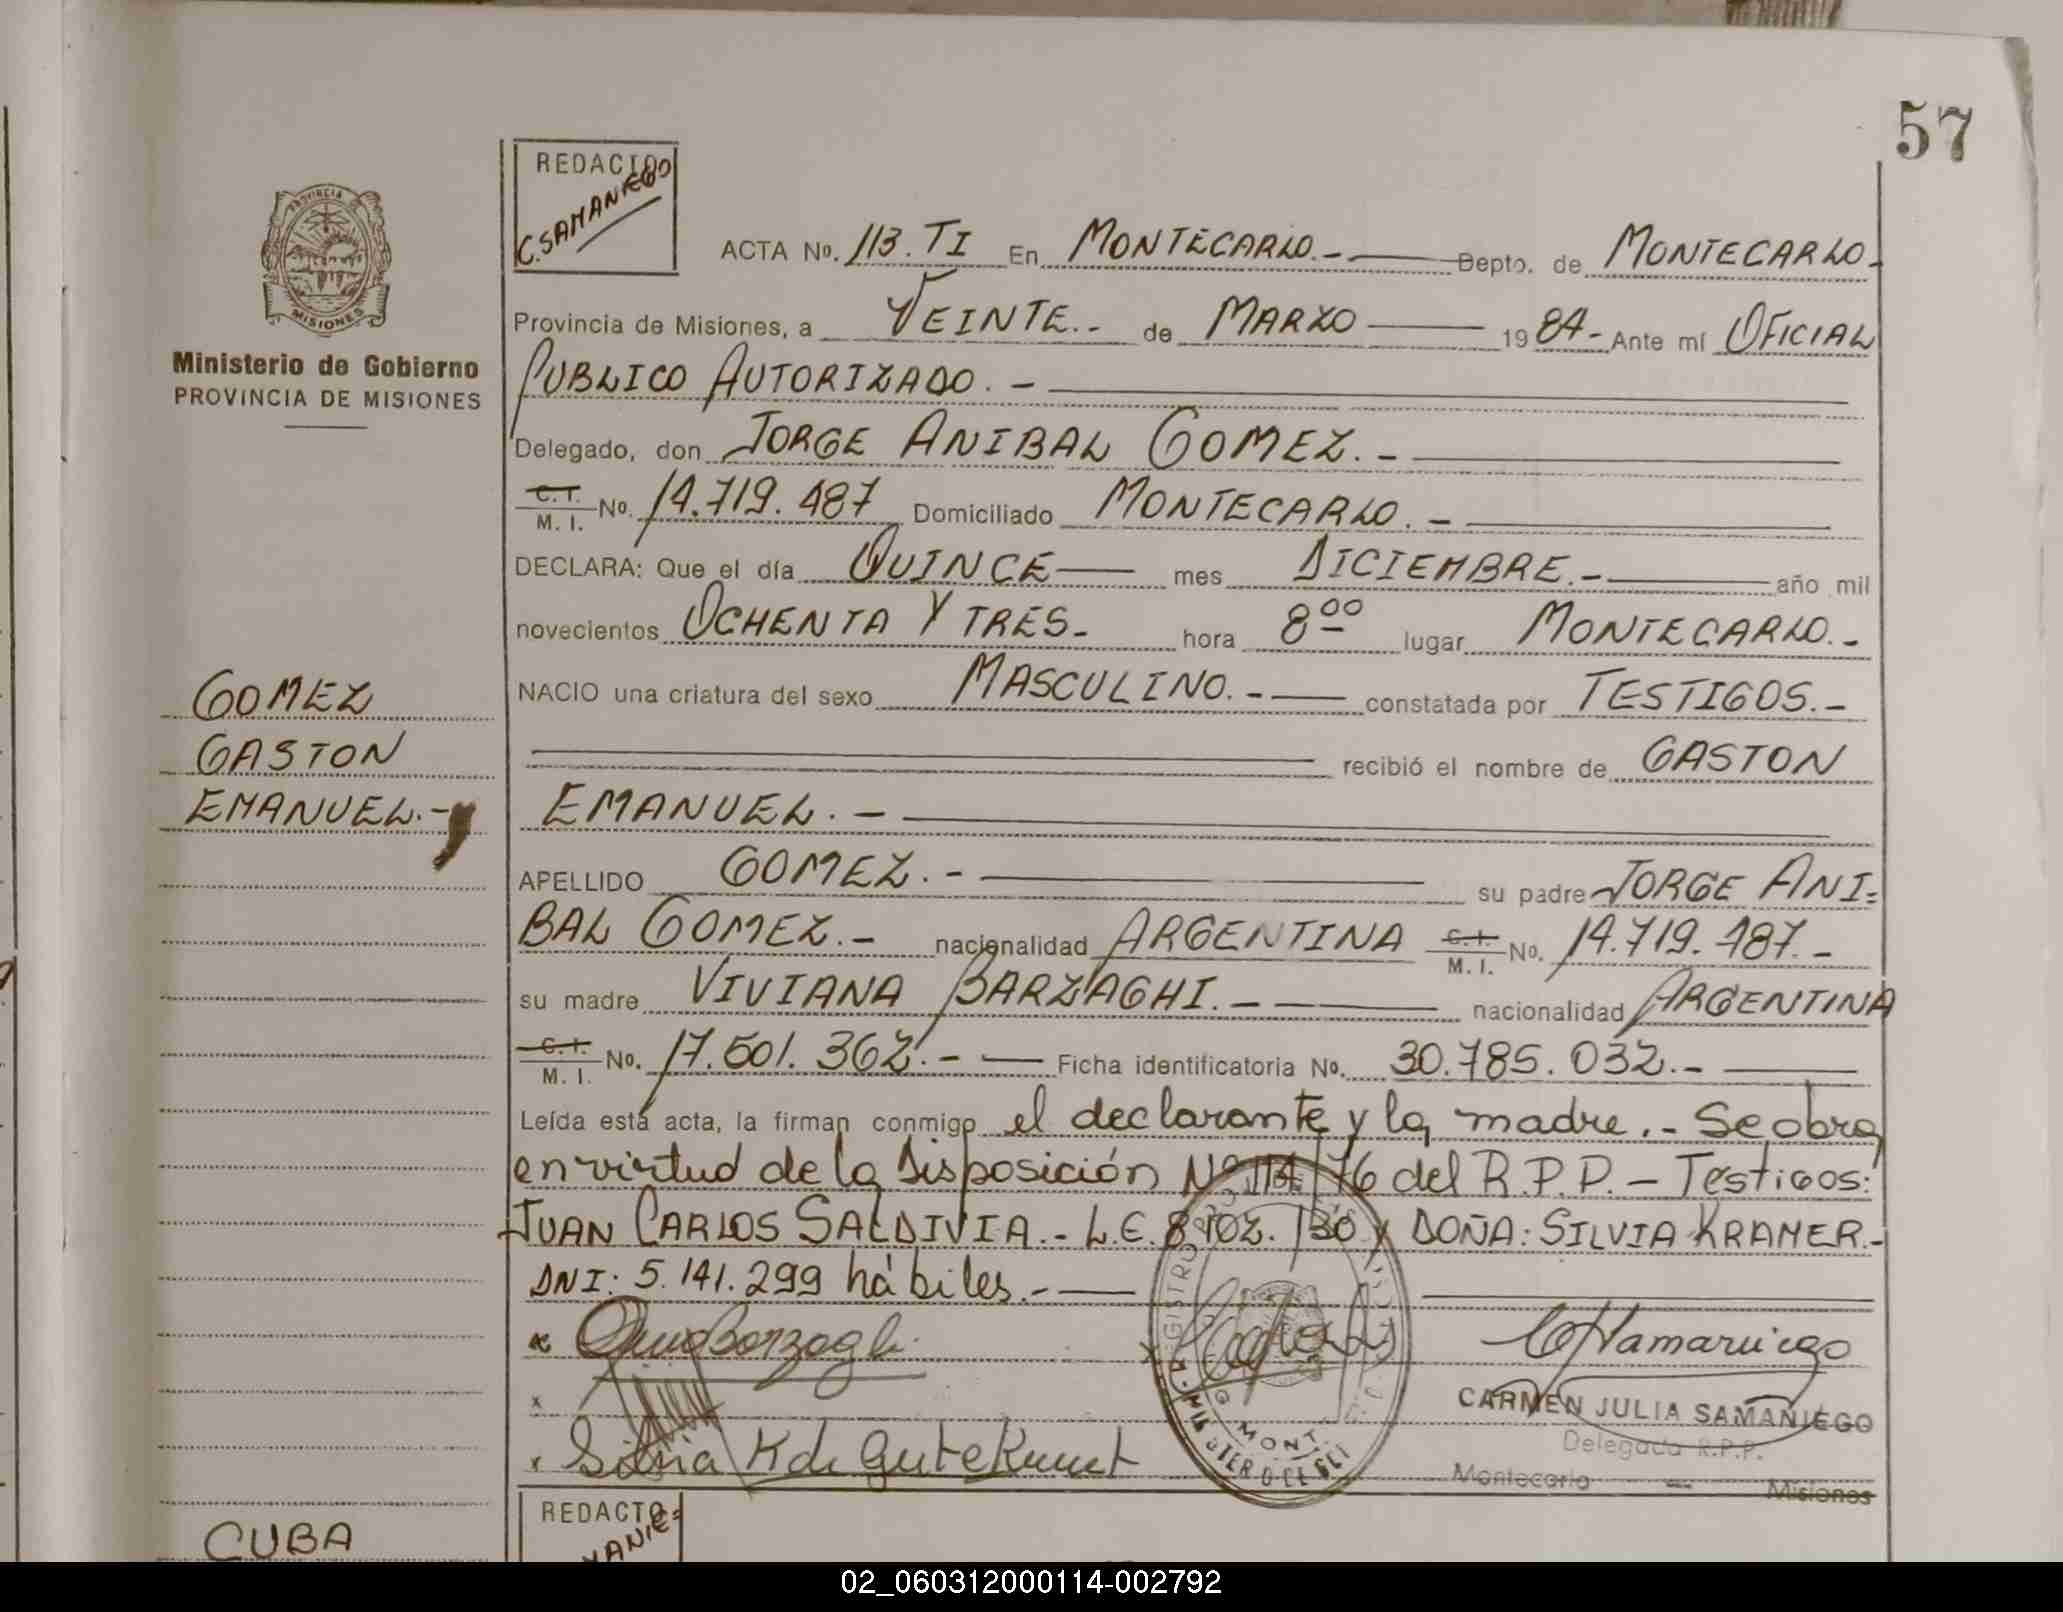 57
REDACTO
C. SAMANIEGO
PROVINCIA
MISIONES
Ministerio de Gobierno
PROVINCIA DE MISIONES
ACTA No. 113. TI En MONTECARLO.- Depto. de MONTECARLO-
Provincia de Misiones, a VEINTE.- de MARZO 1984- Ante mí OFICIAL
PUBLICO AUTORIZADO.-
Delegado, don JORGE ANIBAL GOMEZ.-
C.I. M. I. No. 14.719.487 Domiciliado MONTECARLO.-
DECLARA: Que el día QUINCE mes DICIEMBRE.- año mil
novecientos OCHENTA Y TRES- hora 8 00 lugar MONTECARLO.-
NACIO una criatura del sexo MASCULINO.- constatada por TESTIGOS.-
recibió el nombre de GASTON
EMANUEL.-
GOMEZ
GASTON
EMANUEL.-
APELLIDO GOMEZ.- su padre JORGE ANI=
BAL GOMEZ.- nacionalidad ARGENTINA C.I. M. I. No. 14.719.487.-
su madre VIVIANA BARZAGHI.- nacionalidad ARGENTINA
C.I. M. I. No. 17.501.362.- Ficha identificatoria No. 30.785.032.-
Leída está acta, la firman conmigo el declarante y la madre.- Se obra
en virtud de la Disposición Nº 114/76 del R.P.P.- Testigos:
JUAN CARLOS SALDIVIA.- L.E. 8.102.130 y DOÑA: SILVIA KRAMER.-
DNI: 5.141.299 hábiles.-
x Barzaghi
x
x Silvia K de Gutekunst
CARMEN JULIA SAMANIEGO
Delegada R.P.P.
Montecarlo - Misiones
REDACTO
CUBA
02_060312000114-002792